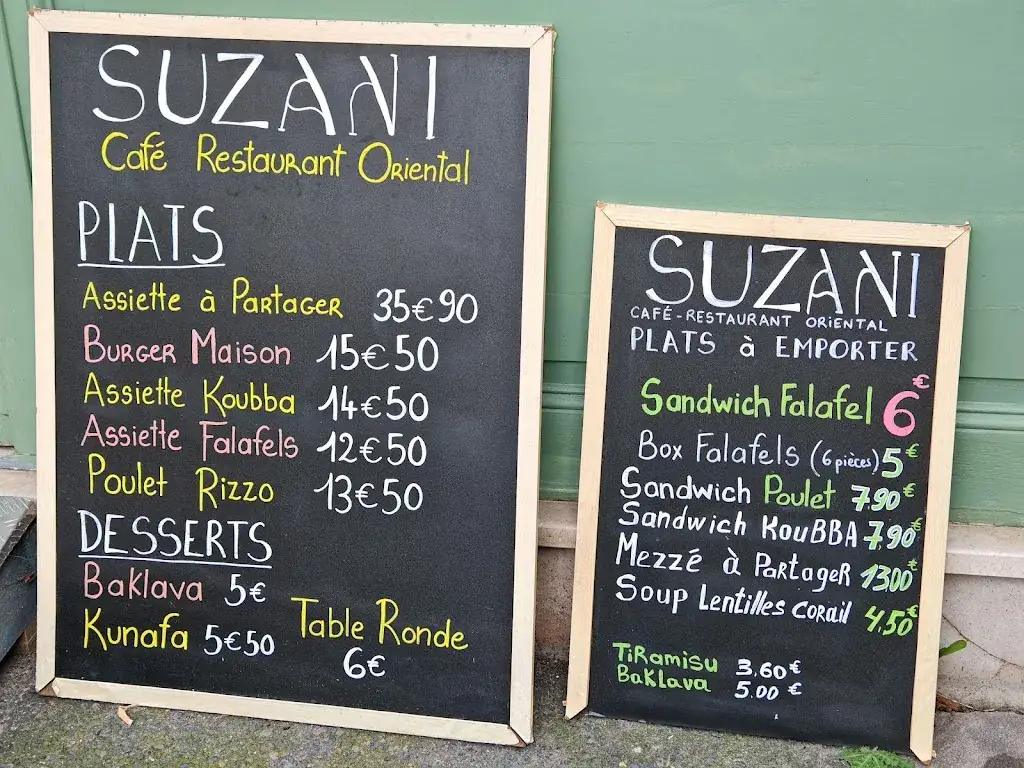 SUZANI
Café Restaurant Oriental
PLATS
Assiette à Partager 35€90
Burger Maison 15€50
Assiette Koubba 14€50
Assiette Falafels 12€50
Poulet Rizzo 13€50
DESSERTS
Baklava 5€
Kunafa 5€50
Table Ronde
6€
SUZANI
CAFÉ-RESTAURANT ORIENTAL
PLATS à EMPORTER
Sandwich Falafel 6€
Box Falafels (6 pièces) 5€
Sandwich Poulet 7.90€
Sandwich KouBBA 7.90€
Mezzé à PartageR 13.00€
Soup Lentilles corail 4.50€
TiRamisu 3.60€
Baklava 5.00 €